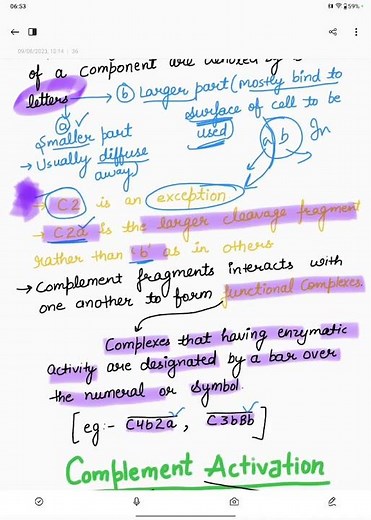 06:53
59%
09/08/2023, 12:14 | 26
of a component are denoted by
letters → ⓑ Larger part (mostly bind to
surface of cell to be
used)
ⓐ
Smaller part
→ Usually diffuse
away)
a b
→ C2 is an exception
→ C2a is the larger cleavage fragment
rather than 'b' as in others
→ Complement fragments interacts with
one another to form functional Complexes.
Complexes that having enzymatic
activity are designated by a bar over
the numeral or symbol.
[eg:- C4b2a, C3bBb]
Complement Activation